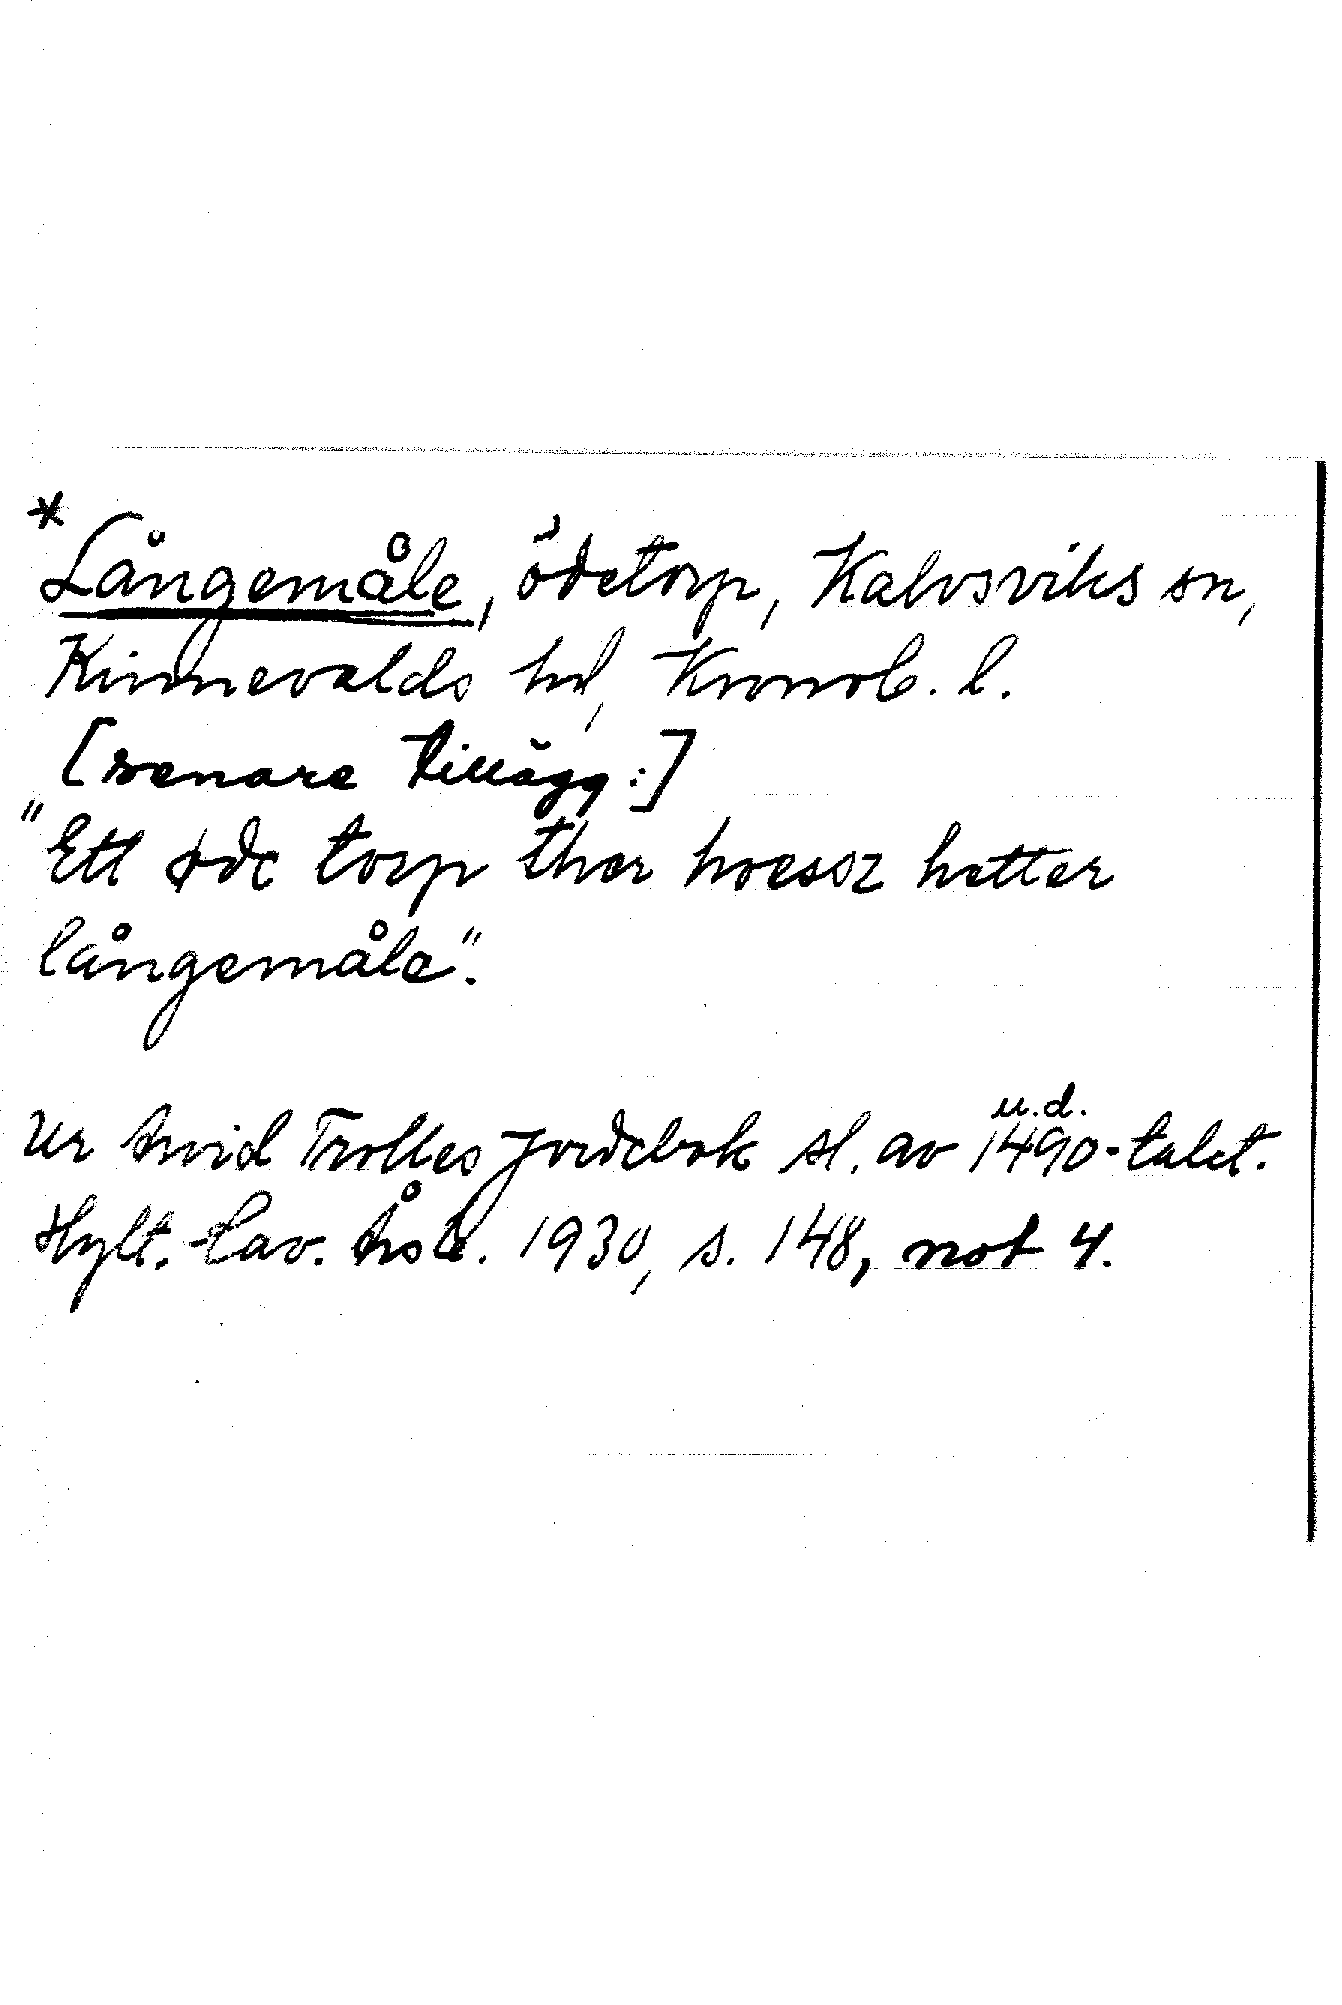 *
Långemåle, ödetorp, Kalvsviks sn,
Kinnevalds hd, Kronob. l.
[senare tillägg:]
"Ett øde torp ther hoessz hetter
långemåle".
u.d.
Ur Arvid Trolles Jordebok sl. av 1490-talet.
Hylt.-Cav. Årsb. 1930, s. 148, not 4.